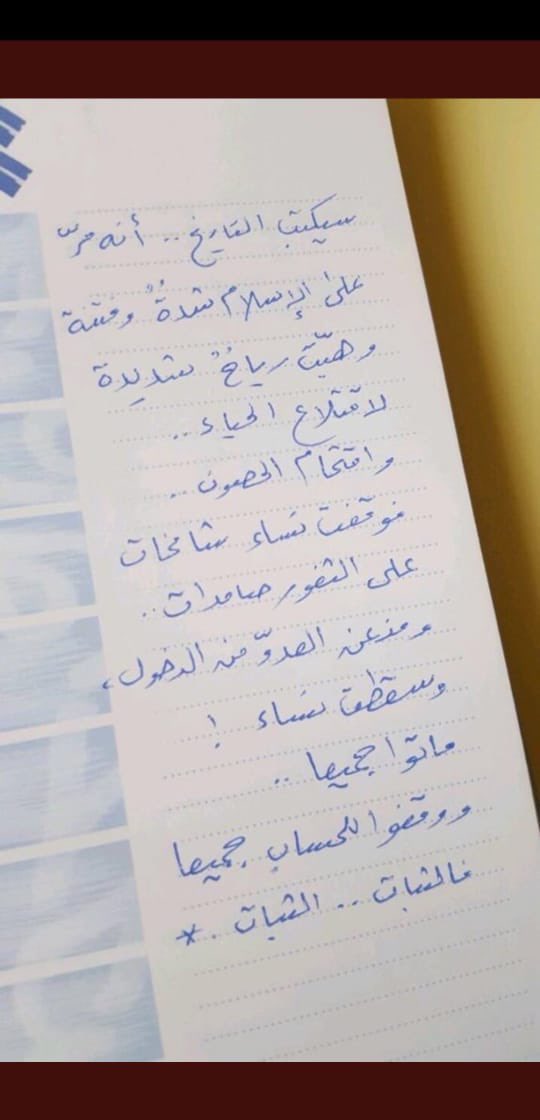 سيكتب التاريخ .. أنه مرّ
على الإسلام شدةٌ وفتنة
وهبّت رياحٌ شديدة
لاقتلاع الحياء ..
واقتحام الحصون ..
فوقفت نساء شامخات
على الثغور صامدات ..
ومنعن العدوّ من الدخول،
وسقطت نساء !
ماتوا جميعا ..
ووقفوا للحساب جميعا
فالثبات .. الثبات . *